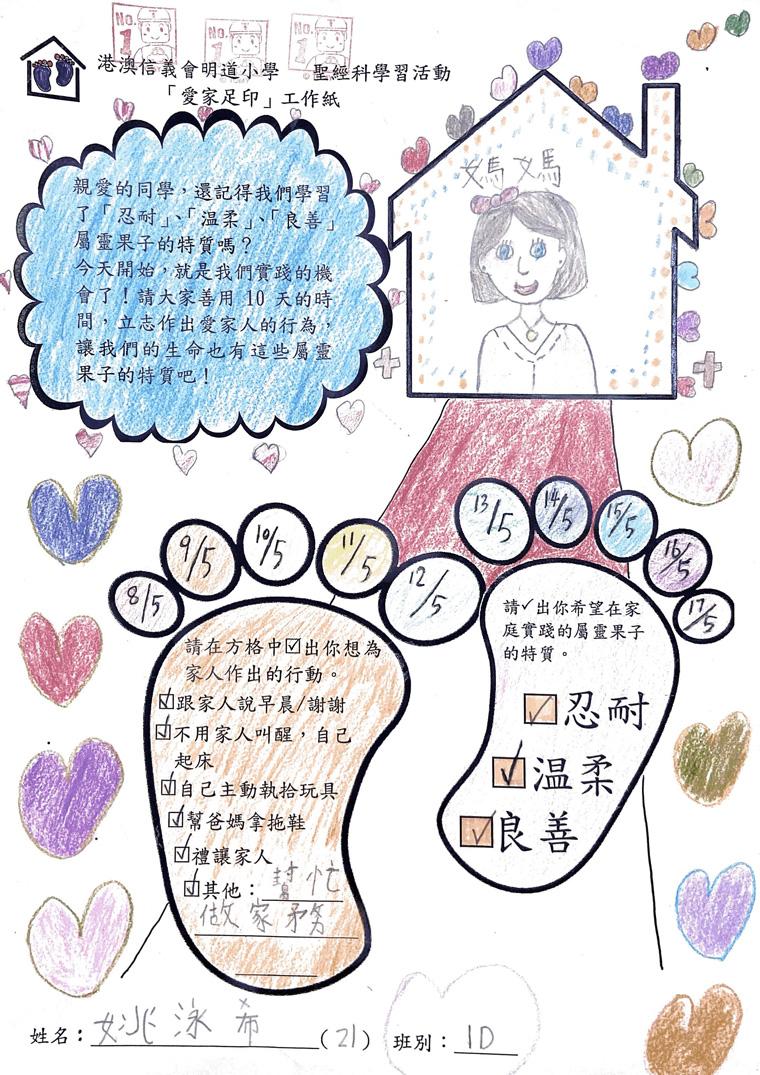 NO.
1
NO.
1
NO.
1
港澳信義會明道小學　聖經科學習活動
「愛家足印」工作紙
親愛的同學，還記得我們學習
了「忍耐」、「温柔」、「良善」
屬靈果子的特質嗎？
今天開始，就是我們實踐的機
會了！請大家善用 10 天的時
間，立志作出愛家人的行為，
讓我們的生命也有這些屬靈
果子的特質吧！
媽媽
8/5
9/5
10/5
11/5
12/5
13/5
14/5
15/5
16/5
17/5
請在方格中☑出你想為
家人作出的行動。
☑跟家人說早晨/謝謝
☑不用家人叫醒，自己
起床
☑自己主動執拾玩具
☑幫爸媽拿拖鞋
☑禮讓家人
☑其他：幫忙
做家務
請✓出你希望在家
庭實踐的屬靈果子
的特質。
☑忍耐
☑温柔
☑良善
姓名：姚泳希(21) 班別：1D